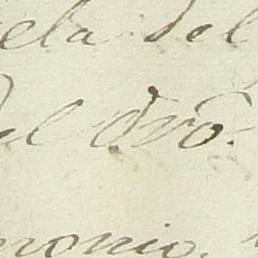 ela del
el Dro.
monio.